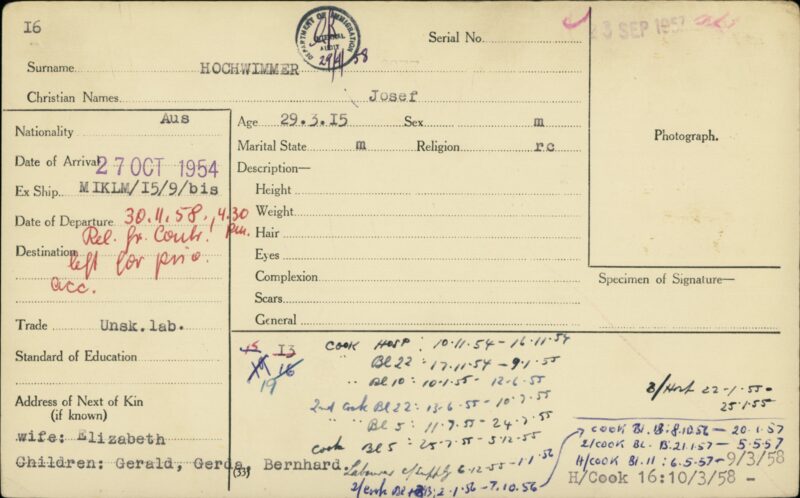 I6
DEPARTMENT OF IMMIGRATION
INTERNAL AUDIT
Serial No.
23 SEP 1957
Surname HOCHWIMMER
Christian Names Josef
Nationality Aus
Age 29.3.I5 Sex m
Marital State m Religion rc
Photograph.
Date of Arrival 27 OCT 1954
Description—
Ex Ship MIKLM/I5/9/bis
Height
Date of Departure 30.11.58., 4.30 pm.
Weight
Rel. fr. Contr.
Hair
Destination left for priv. acc.
Eyes
Complexion
Specimen of Signature—
Scars
General
Trade Unsk.lab.
15 I3
19 16
19
Standard of Education
COOK HOSP: 10.11.54 - 16.11.54
" Bl 22: 17.11.54 - 9.1.55
" Bl 10: 10.1.55 - 12.6.55
B/Host 22-1.55-
25.1.55
Address of Next of Kin
(if known)
2nd Cook Bl 22: 13.6.55 - 10.7.55
" Bl 5: 11.7.55 - 24.7.55
Cook Bl 5: 25.7.55 - 5.12.55
wife: Elizabeth
Children: Gerald, Gerda, Bernhard.
(33)
Labourer c/supply 6.12.55 - 1.1.56
2/Cook Bl 13: 2.1.56 - 7.10.56
COOK Bl. 13: 8.10.56 - 20.1.57
2/COOK BL. 13: 21.1.57 - 5.5.57
H/COOK Bl. 11: 6.5.57 - 9/3/58
H/Cook 16: 10/3/58 -